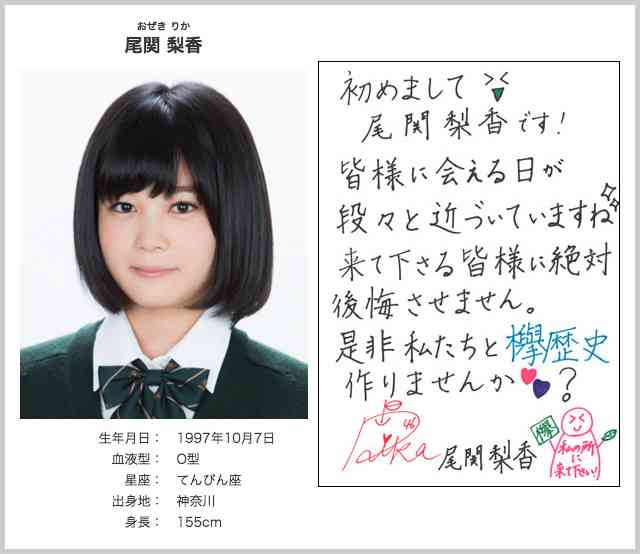 おぜき りか
尾関 梨香
初めまして
尾関梨香です!
皆様に会える日が
段々と近づいていますね
来て下さる皆様に絶対
後悔させません。
是非私たちと欅歴史
作りませんか?
46
Rika
尾関梨香
欅
私の所
に
来て下さい!
生年月日: 1997年10月7日
血液型: O型
星座: てんびん座
出身地: 神奈川
身長: 155cm